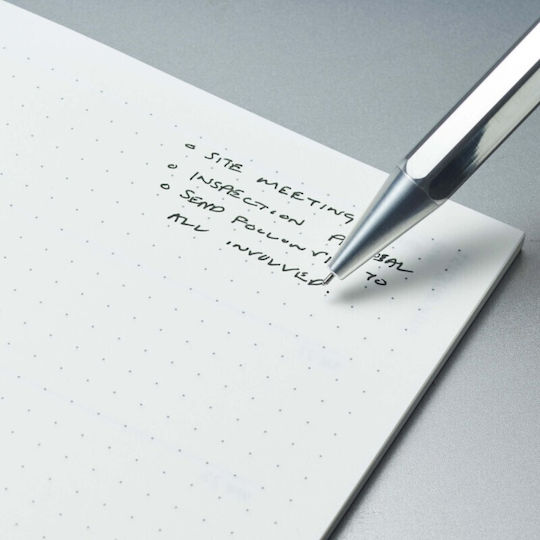 o SITE MEETING
o INSPECTION
o SEND FOLLOW TO
ALL INVOLVED.